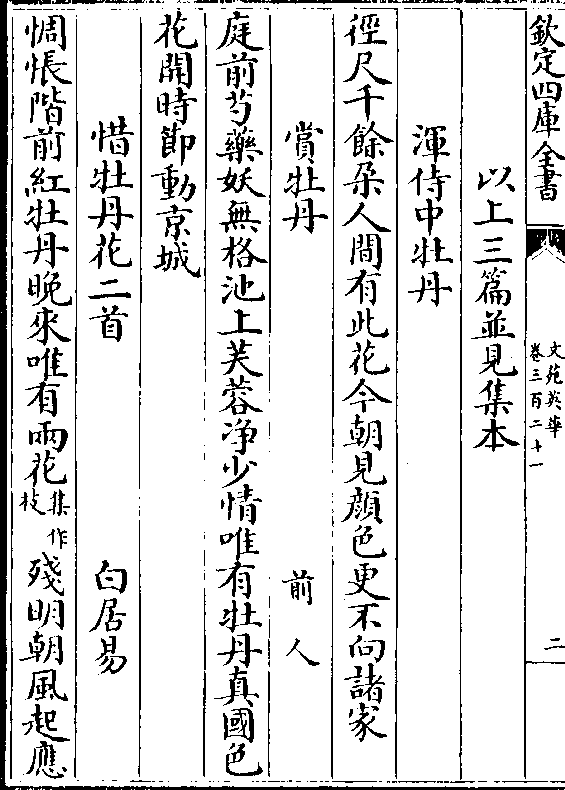 欽定四庫全書
文苑英華
卷三百二十一
二
以上三篇並見集本
渾侍中牡丹
徑尺千餘朶人間有此花今朝見顔色更不向諸家
賞牡丹 前人
庭前芍藥妖無格池上芙蓉净少情唯有牡丹真國色
花開時節動京城
惜牡丹花二首 白居易
惆悵階前紅牡丹晚來唯有兩花集作枝殘明朝風起應